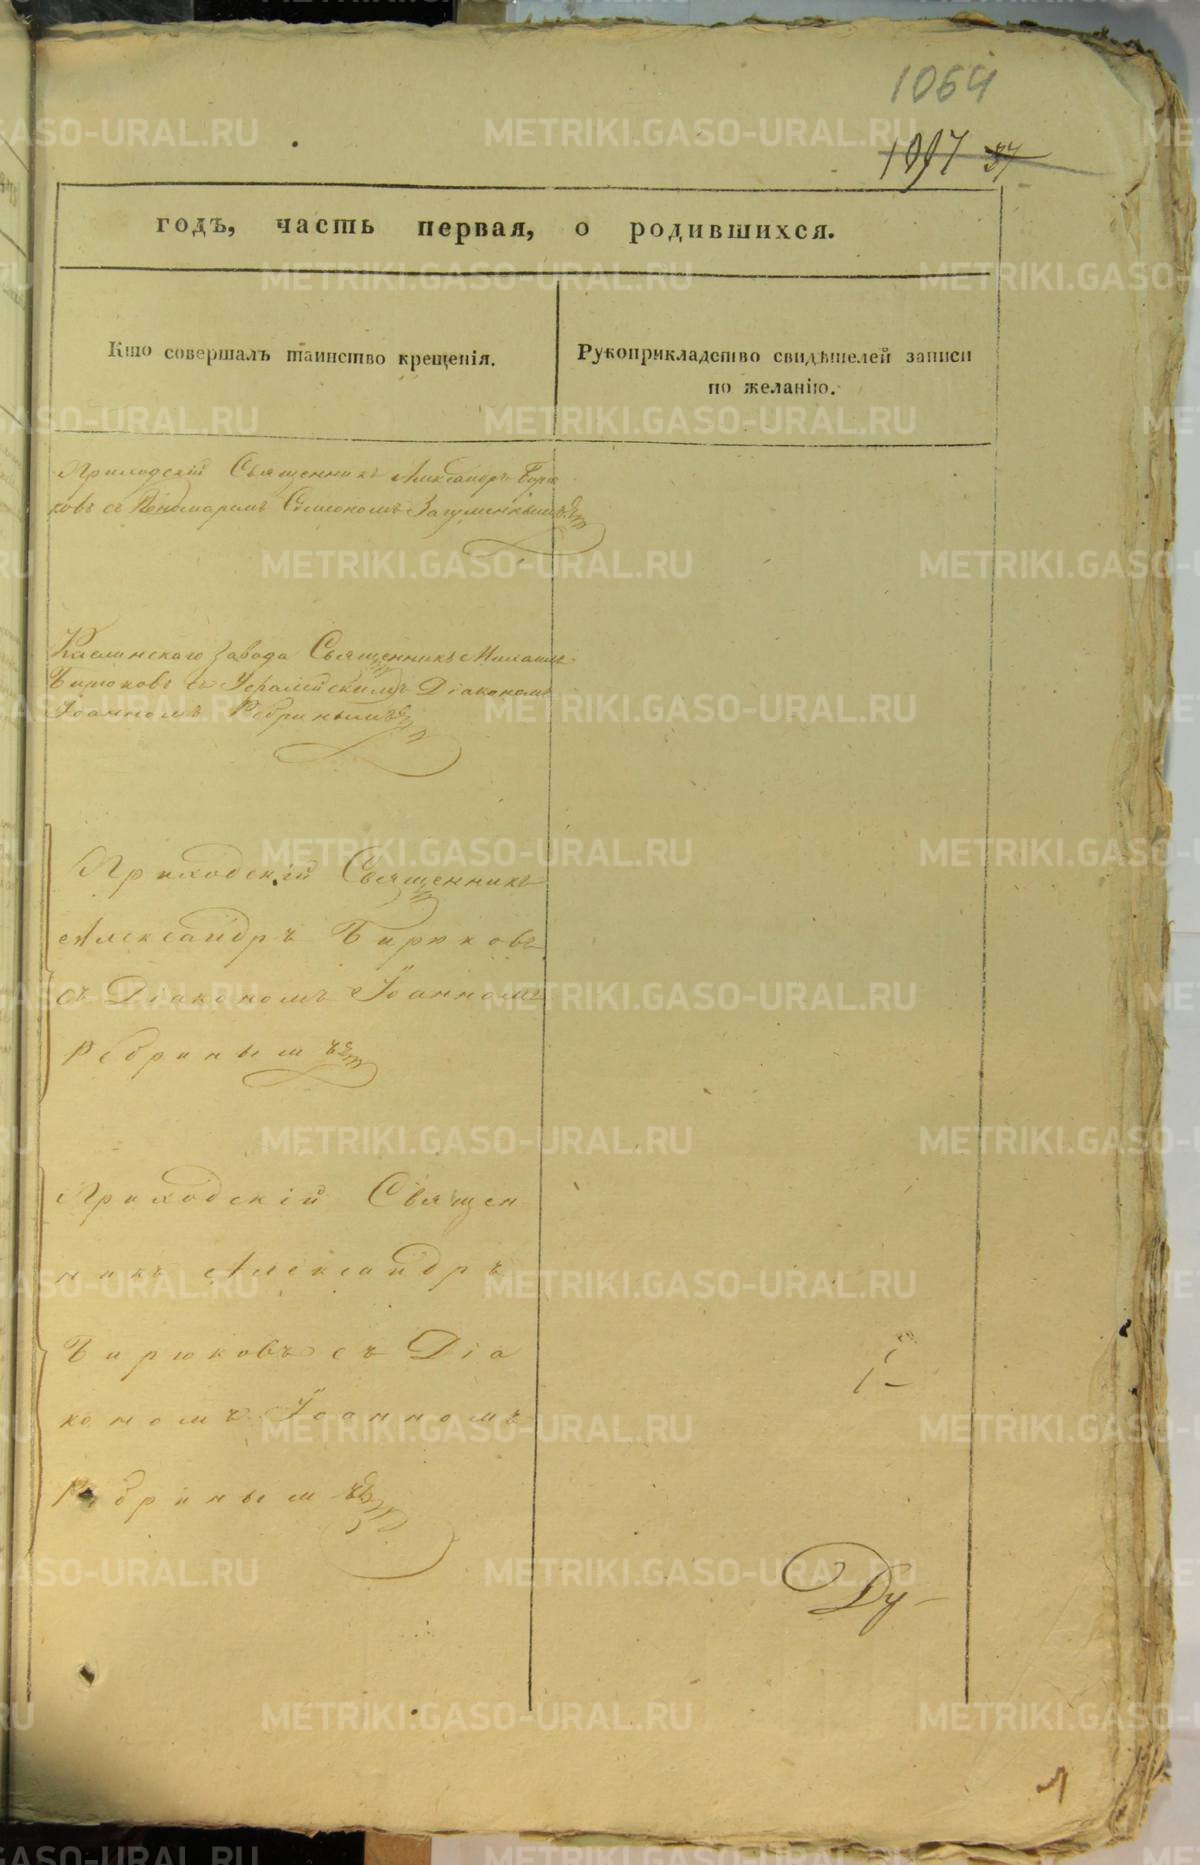 1064
1097 37
годъ, часть первая, о родившихся.
Кто совершалъ таинство крещенія.
Рукоприкладство свидѣтелей записи
по желанію.
Приходскій Священникъ Александръ Бирю
ковъ съ Пономаремъ Симеономъ Загуменнымъ
Каслинскаго завода Священникъ Михаилъ
Бирюковъ съ Діакономъ
Іоанномъ Ребринымъ
Приходскій Священникъ
Александръ Бирюковъ
съ Діакономъ Іоанномъ
Ребринымъ
Приходскій Священ
никъ Александръ
Бирюковъ съ Діа
кономъ Іоанномъ
Ребринымъ
Ду-
METRIKI.GASO-URAL.RU